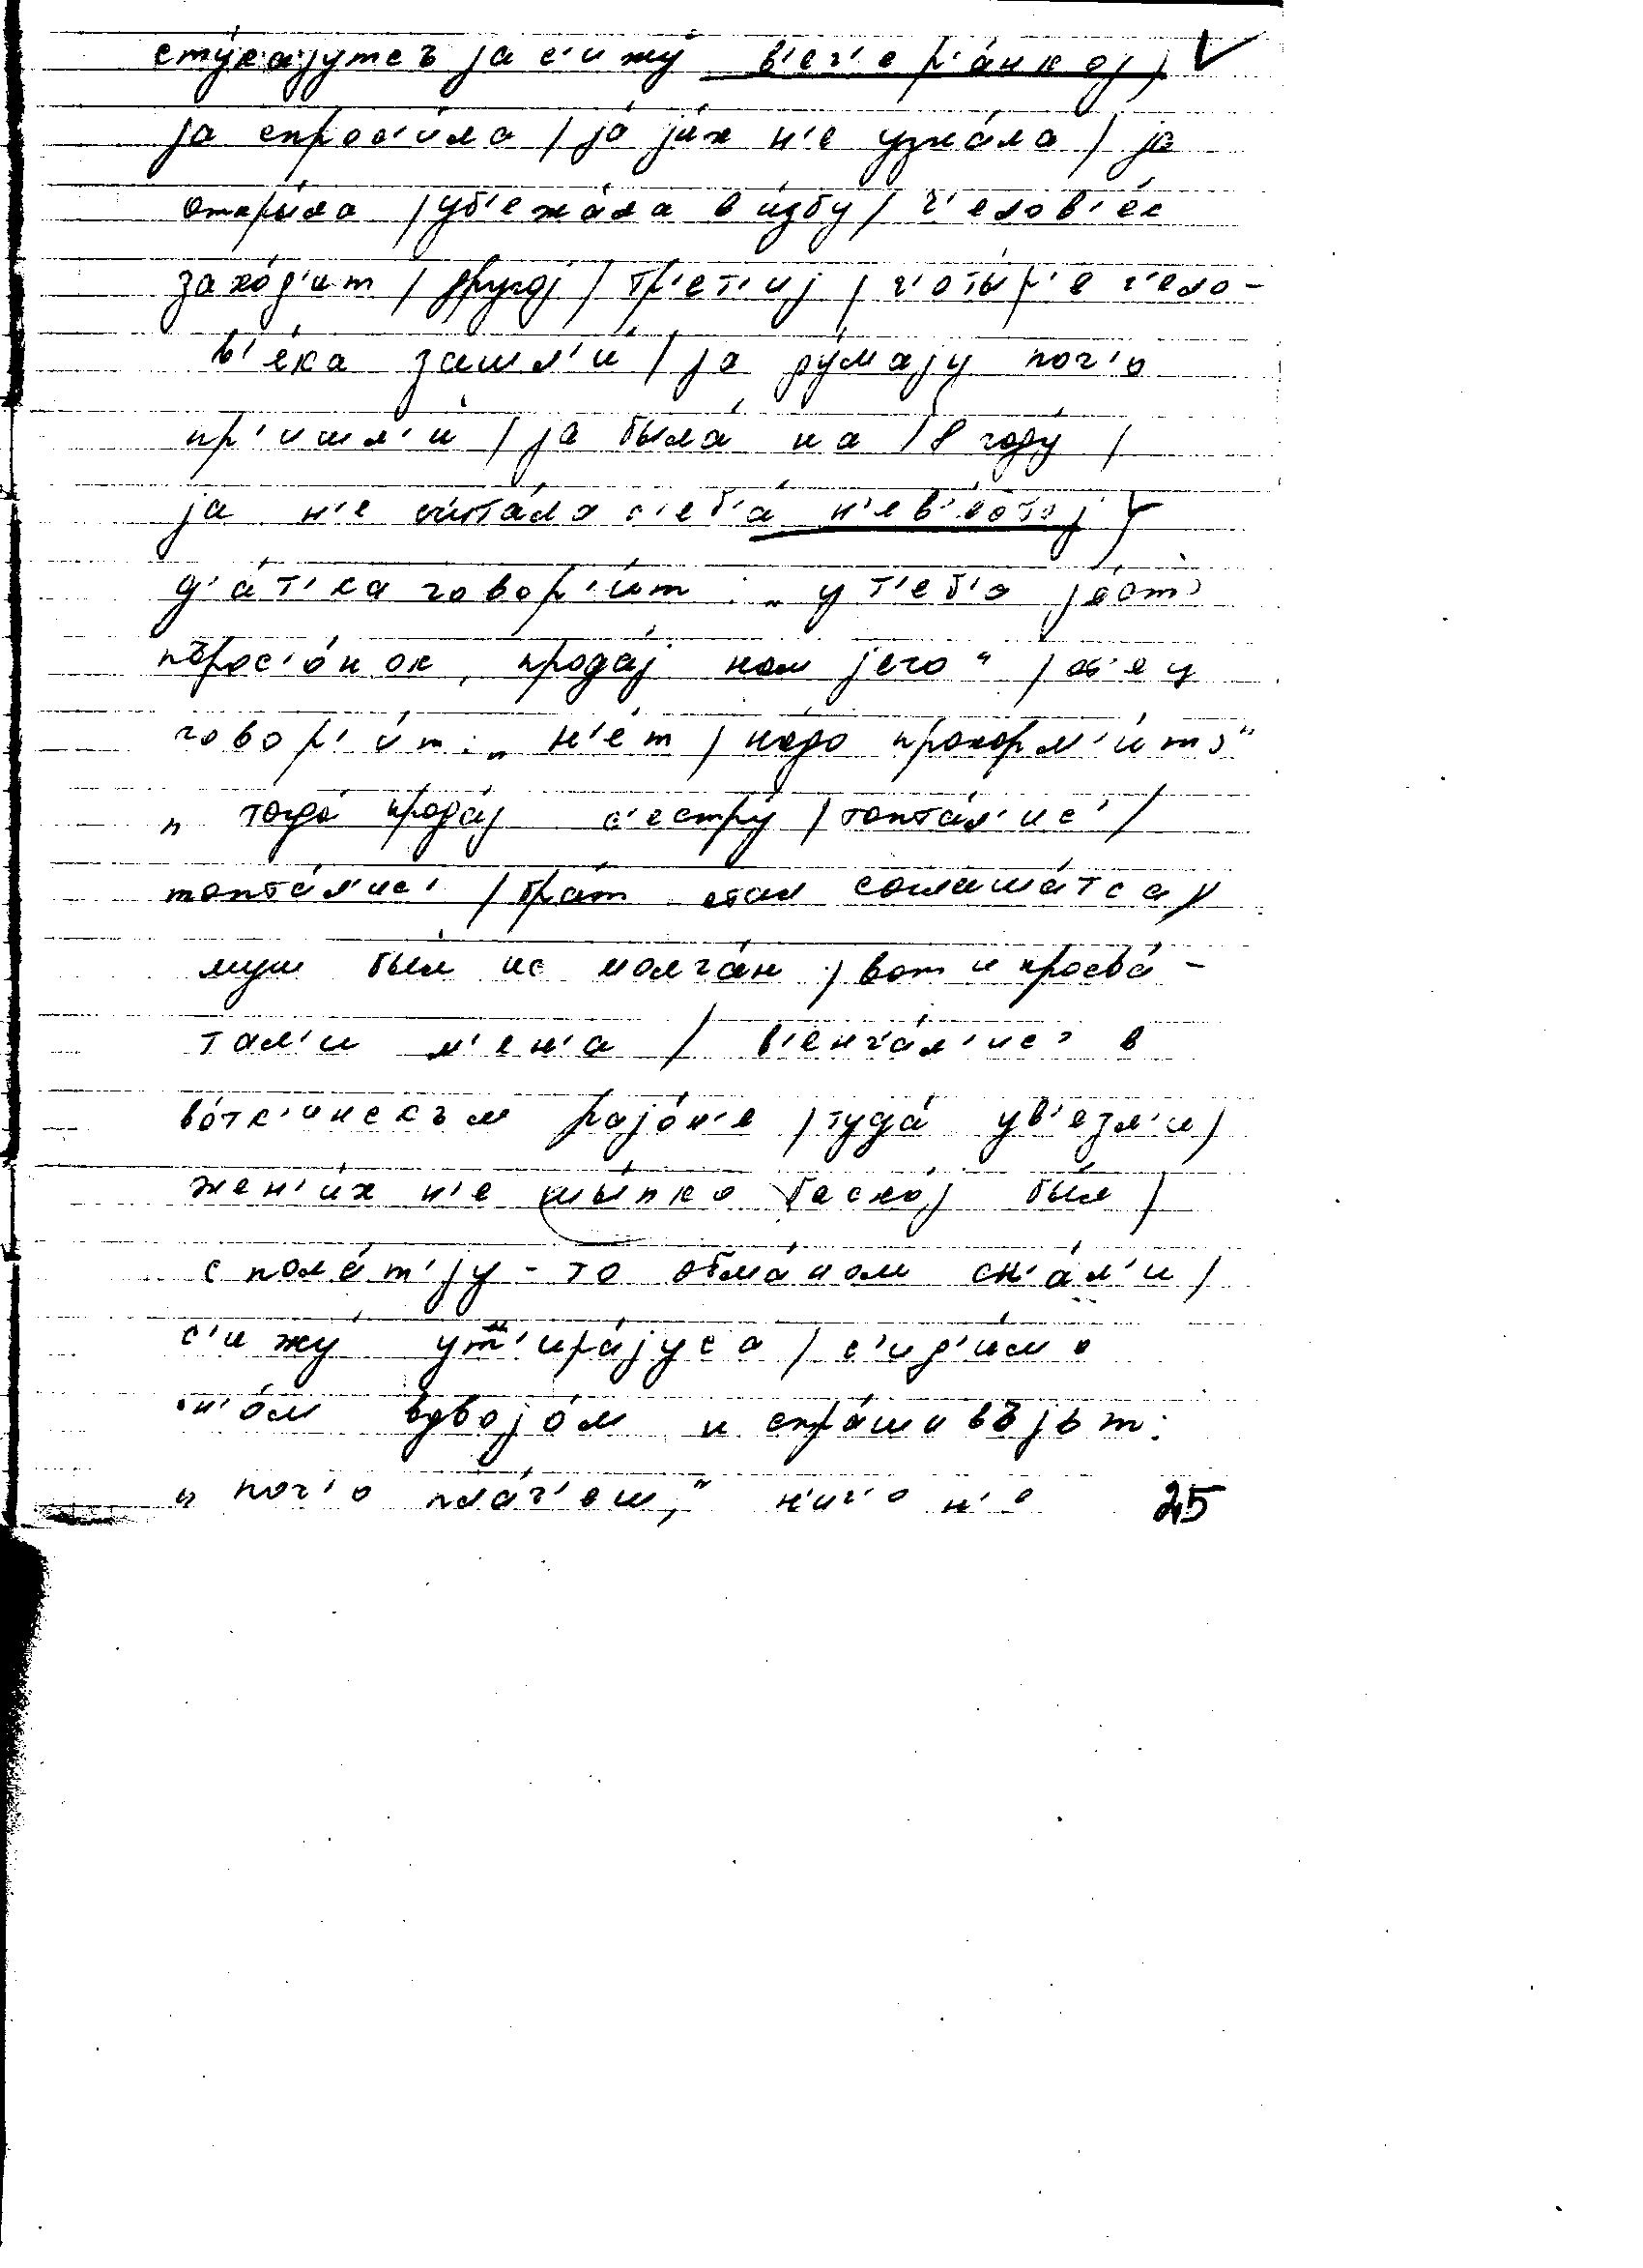 сту́кајутсъ ја с'ижу́ в'еч'ер'а́нкој /
ја спрос'и́ла / ја́ ји́х н'е узна́ла / ја
откры́ла / уб'ежа́ла в и́збу / ч'елов'е́к
захо́д'ит / друго́ј / тр'е́т'иј / ч'оты́р'е ч'ело-
в'е́ка зашл'и́ / ја ду́мају поч'о
пр'ишл'и́ / ја была́ на 18 году́ /
ја н'е сч'ита́ла с'еб'а́ н'ев'е́стој /
д'а́т'ка говор'и́т : „ у т'еб'а је́ст'
пърос'о́нок, прода́ј нам јего " / от'ец
говор'и́т : „ н'е́т / на́до прокорм'и́т' "
„ тогда́ прода́ј с'естру́ / топта́л'ис' /
топта́л'ис' / бра́т стал соглаша́тса /
муш бы́л ис молча́н / вот и просва́-
тал'и м'ен'а / в'енч'а́л'ис' в
во́тк'инскъм рајо́н'е / туда́ ув'езл'и /
жен'и́х н'е шы́пко баско́ј бы́л /
с поле́т'ју - то обма́ном сн'а́л'и /
с'ижу́ ут'ира́јуса / с'ид'и́м о
н'о́м вдвоjо́м и спра́шивъјът :
„ поч'о пла́ч'ош, " н'ич'о н'е
25